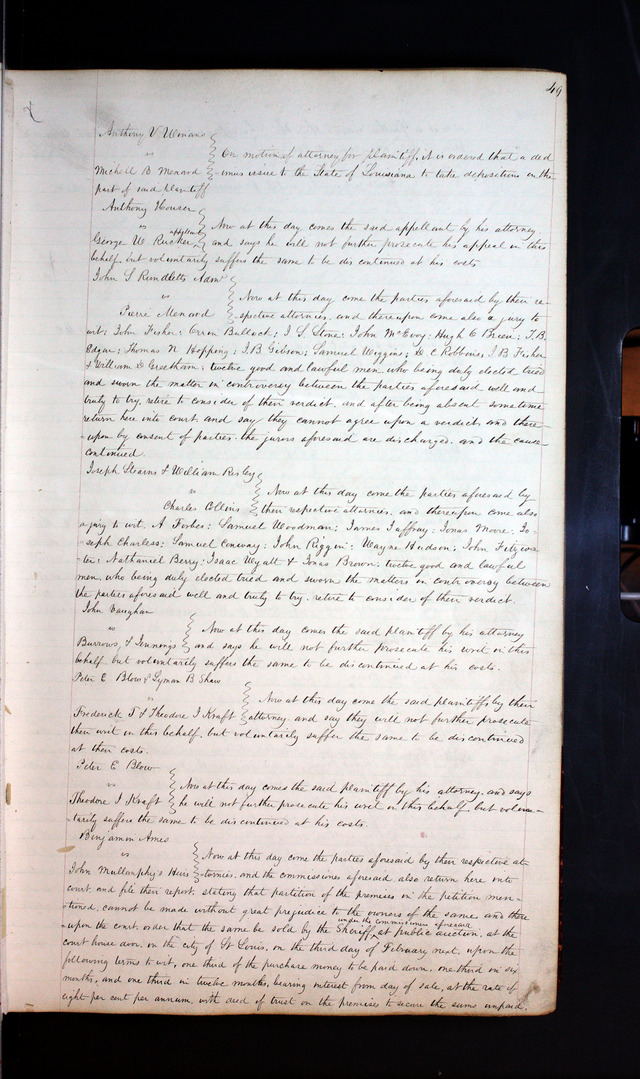 49
Anthony V Ulmans
vs
Michell B. Menard
On motion of attorney for plaintiff, it is ordered that a ded
imus issue to the State of Louisiana to take depositions on the
part of said plaintiff
Anthony Houser
vs appellant
George W Rucker
Now at this day comes the said appellant by his attorney
and says he will not further prosecute his appeal in this
behalf but voluntarily suffers the same to be discontinued at his costs
John S Rundletts Admr
vs
Pierre Menard
Now at this day come the parties aforesaid by their re-
-spective attornies, and thereupon come also a jury to
wit; John Fisher; Orron Bullock; I. S. Stone; John McEvoy; Hugh O Brien; T. B.
Edgar; Thomas N Hopping; J. B Gibson; Samuel Wiggins; C Robbins, J B Fisher
& William D Cheetham; twelve good and lawful men, who being duly elected tried
and sworn the matter in controversy between the parties aforesaid well and
truly to try, retire to consider of their verdict, and after being absent sometime
return here into court, and say they cannot agree upon a verdict, and there
-upon by consent of parties, the jurors aforesaid are discharged, and the cause
continued.
Joseph Stearns & William Risley
vs
Charles Collins
Now at this day come the parties aforesaid by
their respective attornies, and thereupon come also
a jury to wit, A Forbes; Samuel Woodman; James Jaffray; Jonas Moore; Jo-
seph Charless; Samuel Conway; John Riggin; Wayne Hudson; John Fitzwa-
ter; Nathaniel Berry; Isaac Wyatt & Jonas Brown; twelve good and lawful
men, who being duly elected tried and sworn the matters in controversy between
the parties aforesaid well and truly to try, retire to consider of their verdict.
John Vaughan
vs
Burrows & Jennings
Now at this day comes the said plaintiff by his attorney
and says he will not further prosecute his writ in this
behalf but voluntarily suffers the same to be discontinued at his costs.
Peter E Blow & Lyman B Shaw
vs
Frederick T & Theodore J Kraft
Now at this day come the said plaintiffs by their
attorney and say they will not further prosecute
their writ in this behalf, but voluntarily suffer the same to be discontinued
at their costs.
Peter E Blow
vs
Theodore J Kraft
Now at this day comes the said plaintiff by his attorney, and says
he will not further prosecute his writ in this behalf, but volun-
-tarily suffers the same to be discontinued at his costs.
Benjamin Ames
vs
John Mullanphy's Heirs
Now at this day come the parties aforesaid by their respective at-
-tornies, and the commissioners aforesaid also return here into
court and file their report, stating that partition of the premises in the petition men-
-tioned, cannot be made without great prejudice to the owners of the same, and there
under the commissioners aforesaid
-upon the court order that the same be sold by the Sheriff, at public auction, at the
court house door, in the city of St Louis, on the third day of February next, upon the
following terms to wit, one third of the purchase money to be paid down, one third in six
months, and one third in twelve months, bearing interest from day of sale, at the rate of
eight per cent per annum, with deed of trust on the premises to secure the sums unpaid.